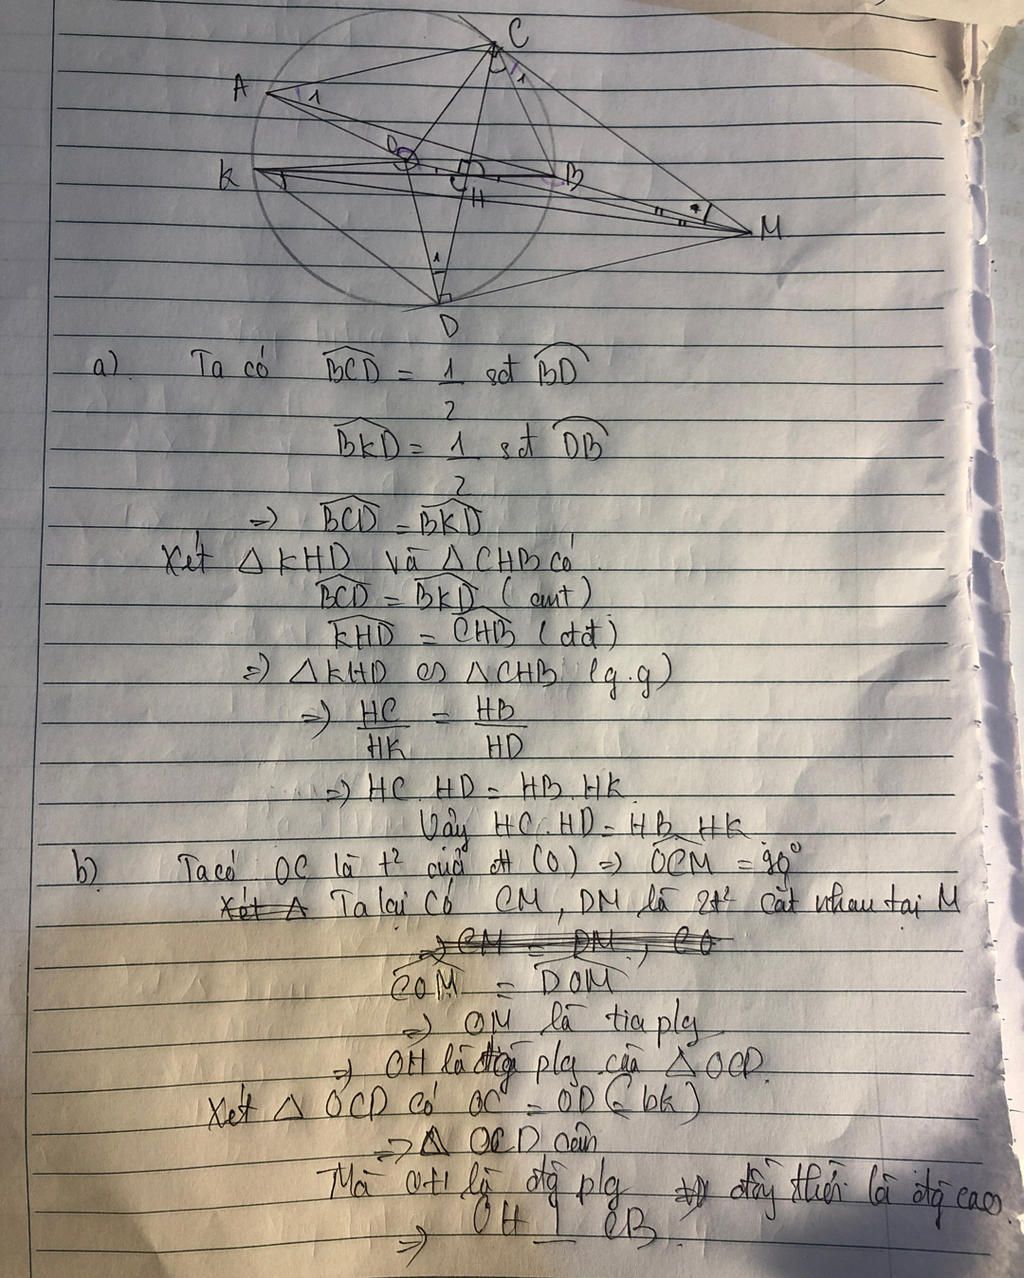 C
A
1
1
O
K
B
H
M
1
D
a) Ta có BCD = 1/2 sđ BD
BKD = 1/2 sđ DB
=> BCD = BKD
Xét Δ KHD và Δ CHB có
BCD = BKD (cmt)
KHD = CHB (đđ)
=> Δ KHD ∽ Δ CHB (g.g)
=> HC/HK = HB/HD
=> HC . HD = HB . HK
Vậy HC . HD = HB . HK
b) Ta có OC là t² của đt (O) => OCM = 90°
Xét Δ Ta lại có CM, DM là 2t² cắt nhau tại M
=> CM = DM, CO
COM = DOM
=> OM là tia plg
=> OH là đg plg của Δ OCD.
Xét Δ OCD có OC = OD (= bk)
=> Δ OCD cân
Mà OH là đg plg đồng thời là đg cao
=> OH ⊥ CB.